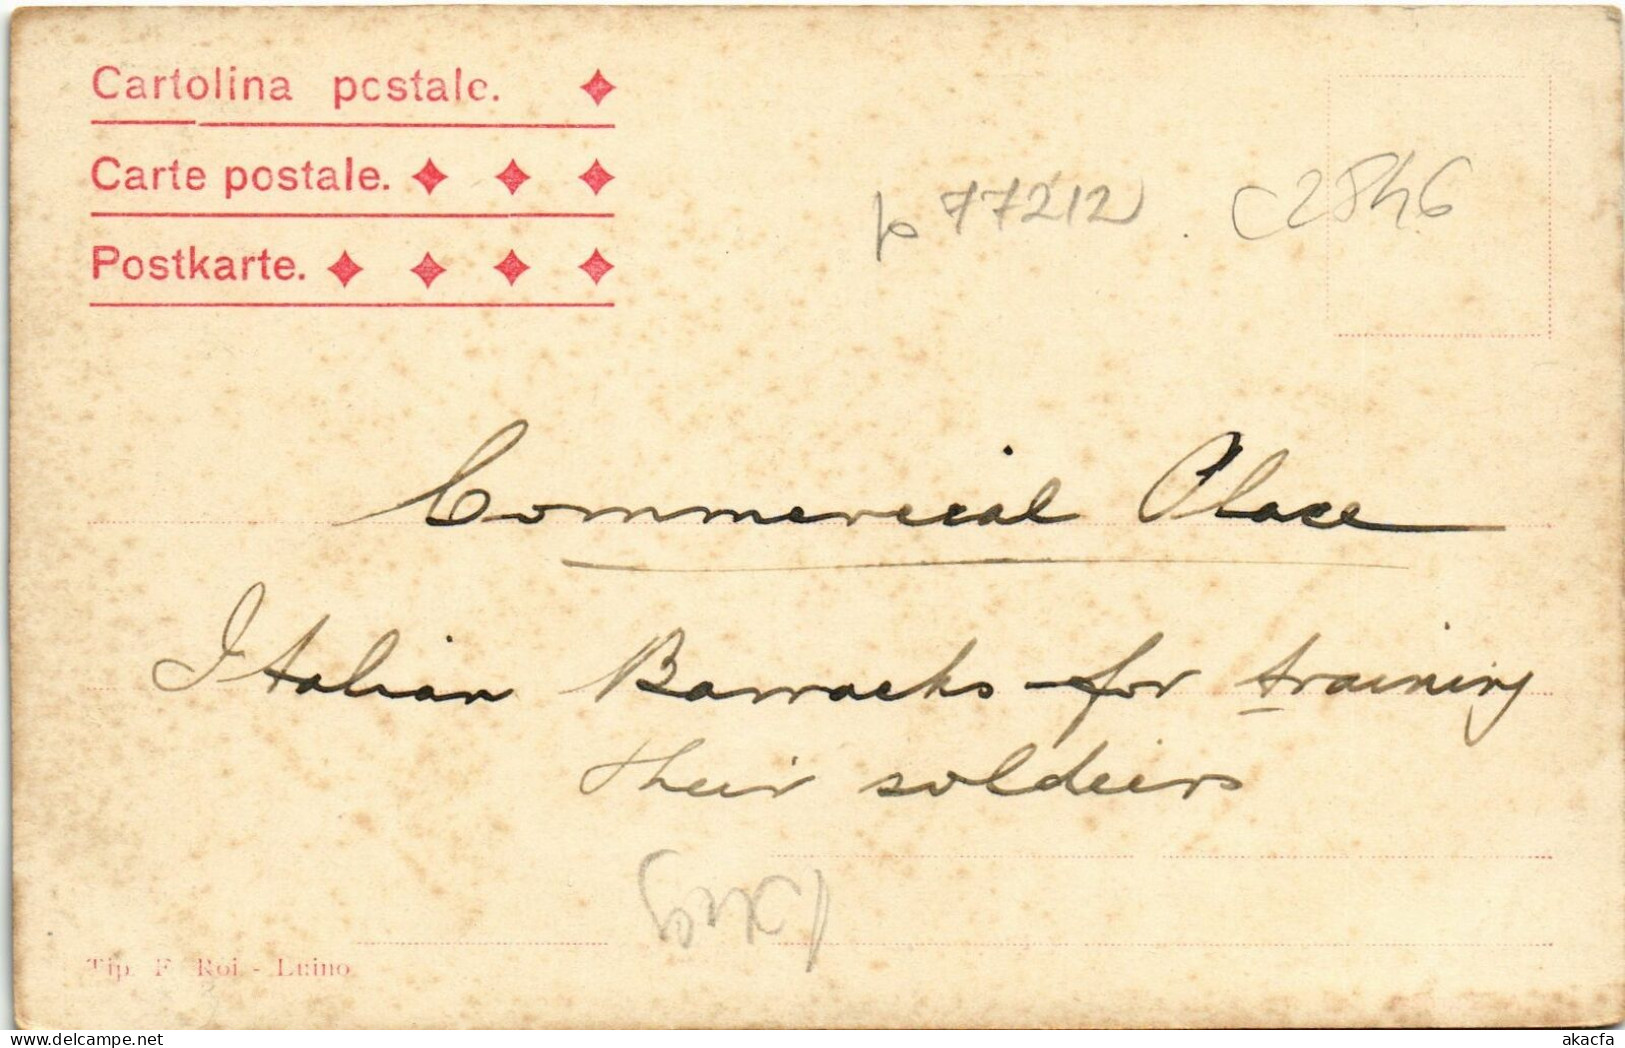 Cartolina postale.
Carte postale.
Postkarte.
p 77212 . C2846
Commercial Place
Italian Barracks for training
their soldeirs
Tip. F. Roi - Luino
akacfa